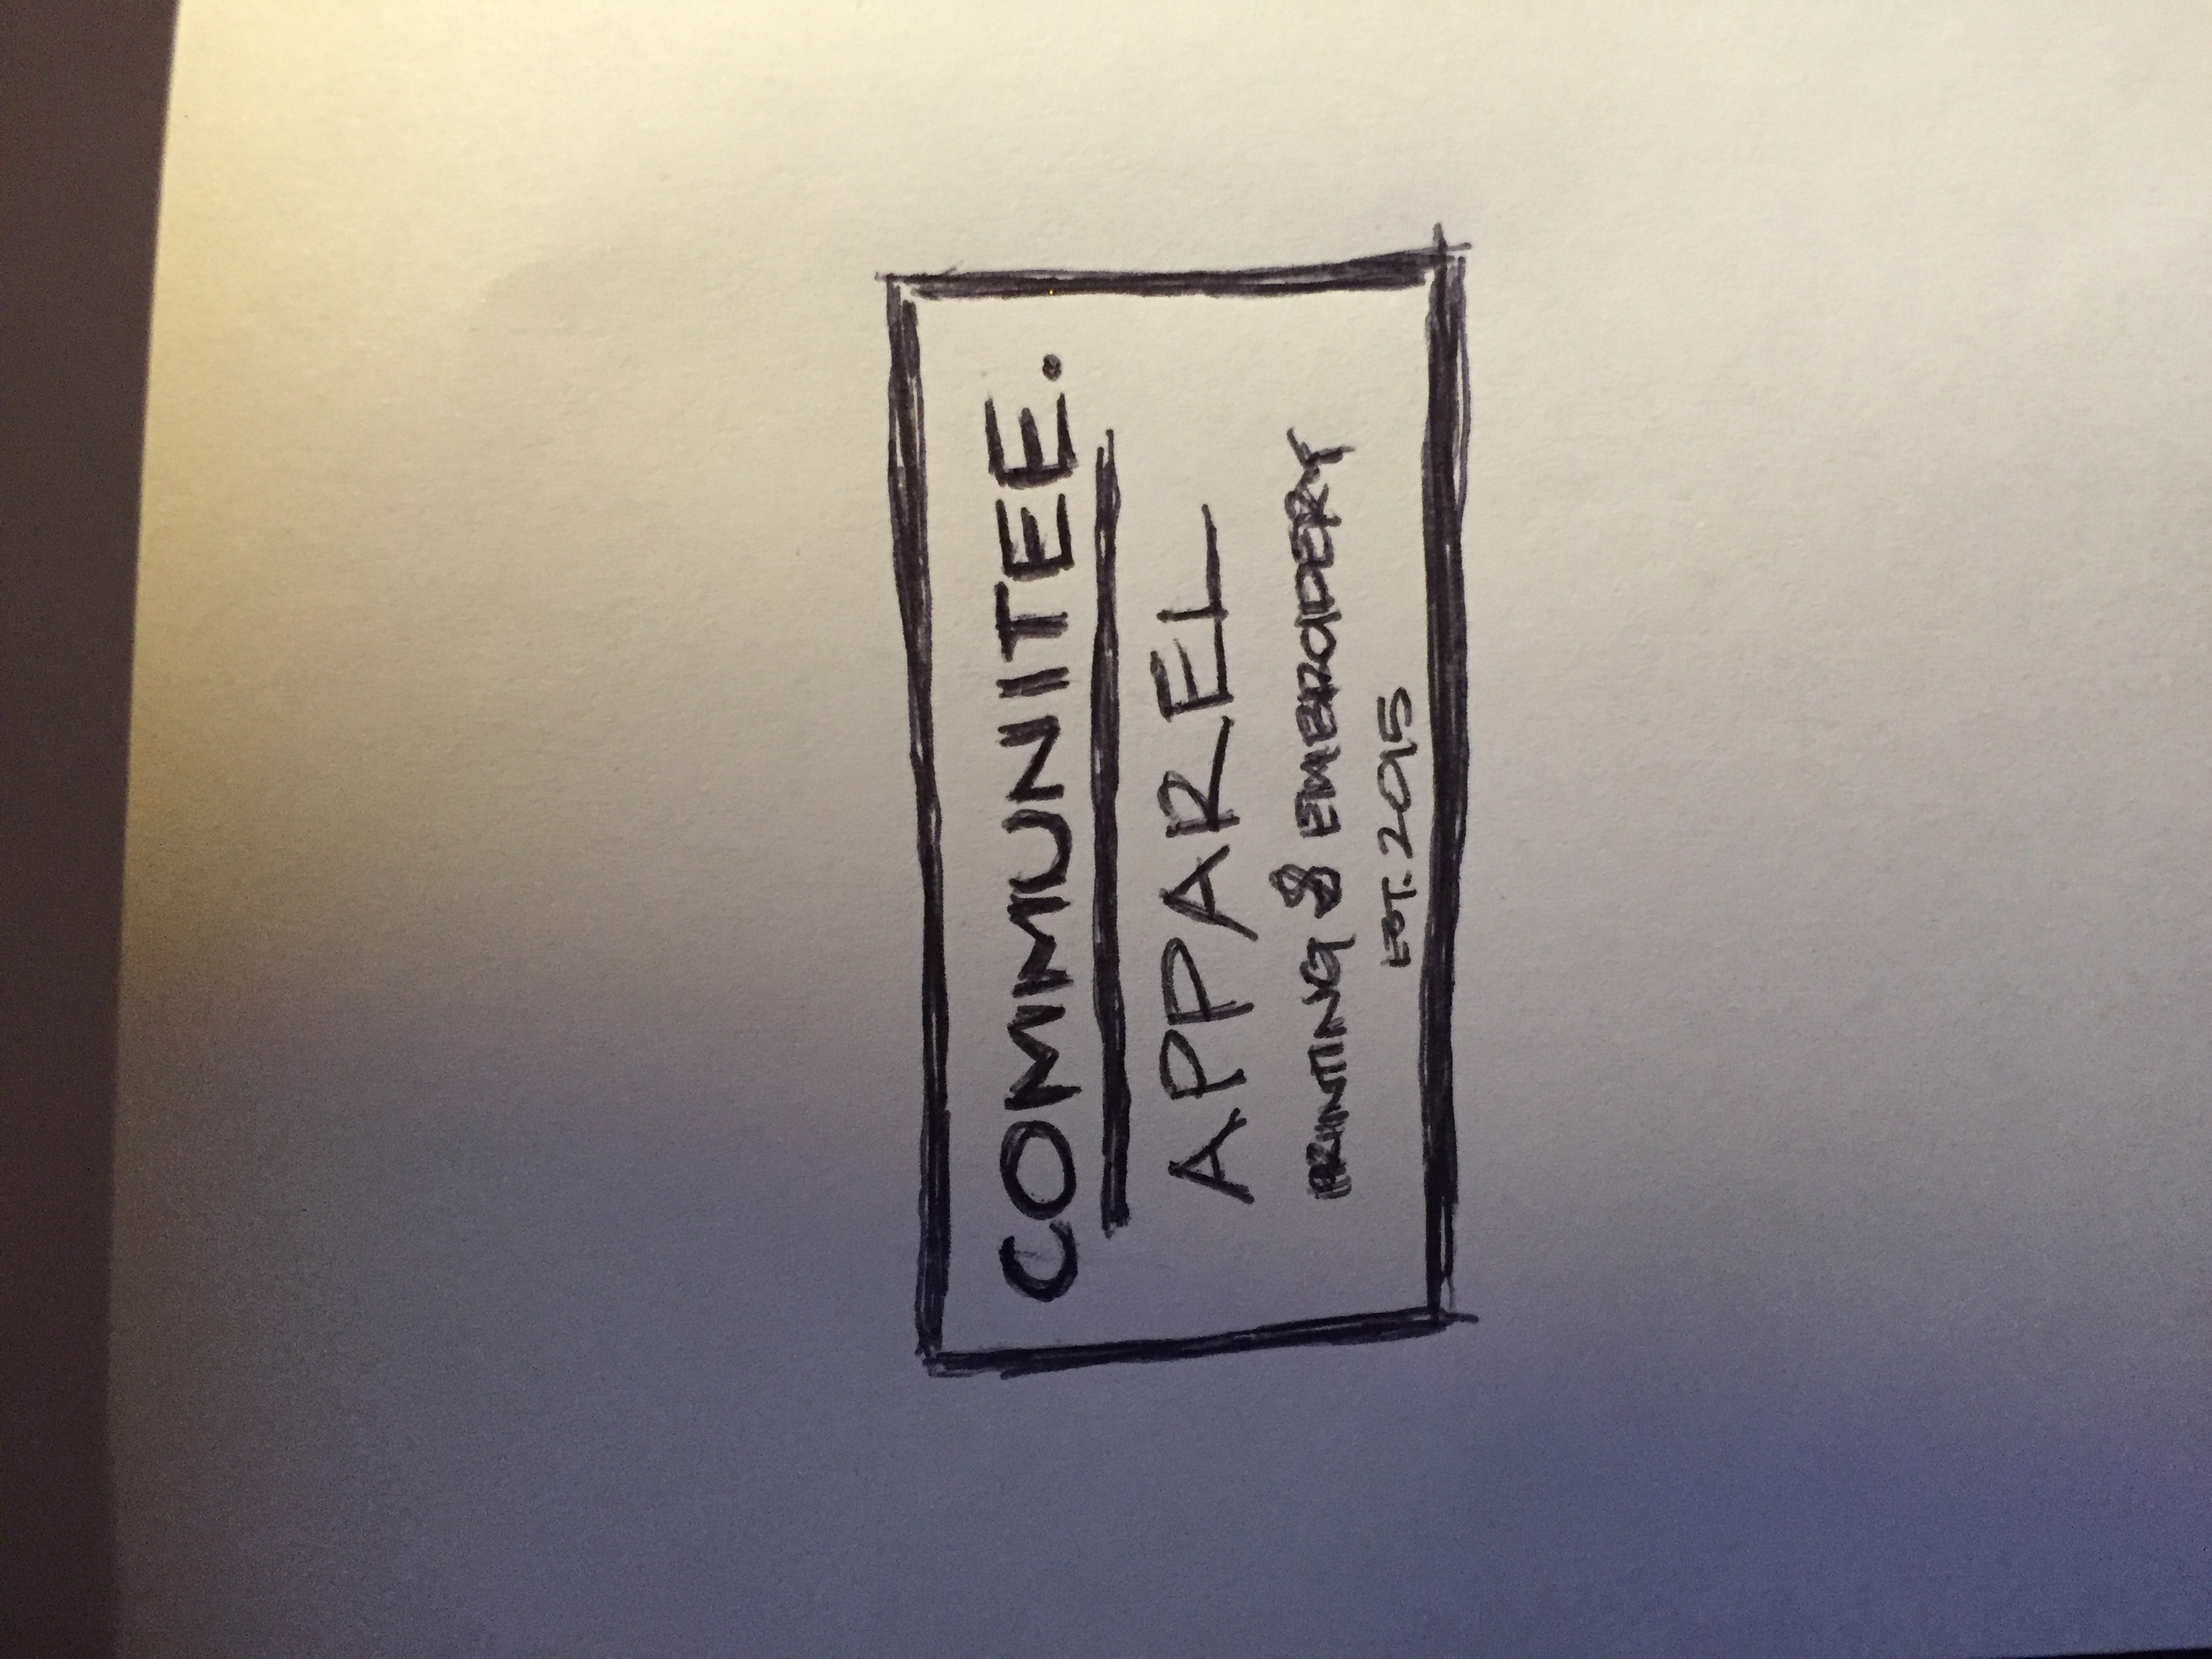 COMMUNITEE.
APPAREL
PRINTING & EMBROIDERY
EST. 2015